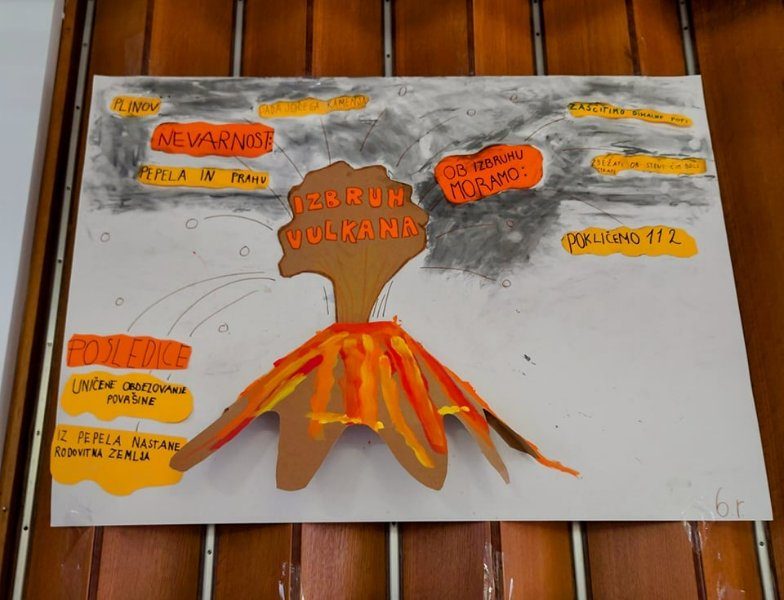 PLINOV
NEVARNOST:
PEPELA IN PRAHU
IZBRUH
VULKANA
OB IZBRUHU
MORAMO:
ZAŠČITIMO DIHALNE POTI
POKLIČEMO 112
POSLEDICE
UNIČENE OBDEZOVANJE
POVAŠINE
IZ PEPELA NASTANE
RODOVITNA ZEMLJA
6.r